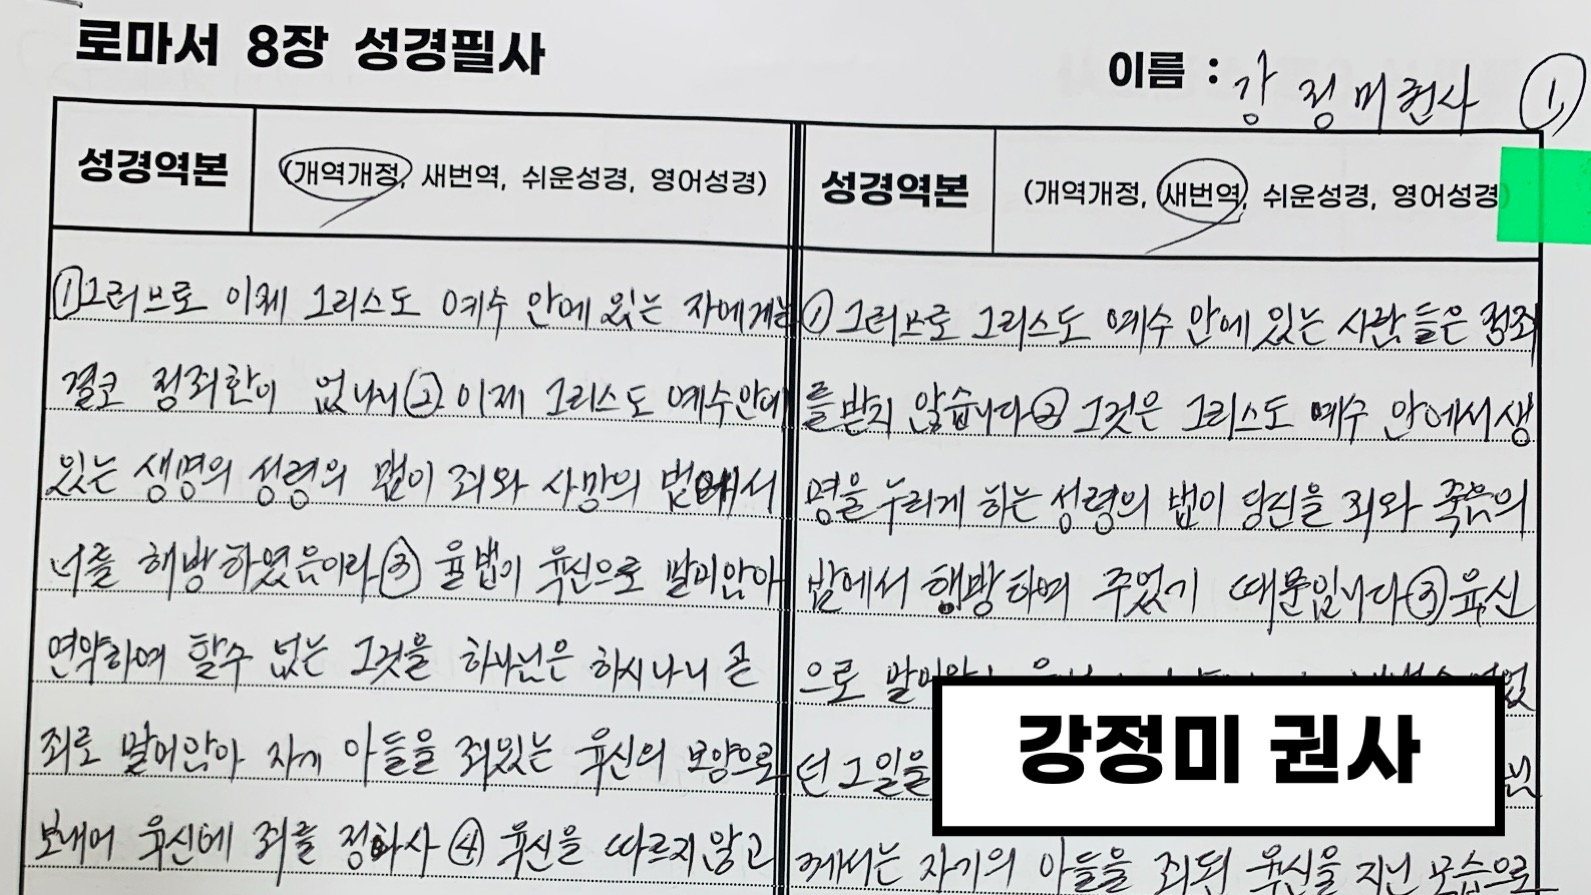 로마서 8장 성경필사
이름 : 강정미권사 ①
성경역본 (개역개정, 새번역, 쉬운성경, 영어성경)
①그러므로 이제 그리스도 예수 안에 있는 자에게는
결코 정죄함이 없나니 ② 이제 그리스도 예수안에
있는 생명의 성령의 법이 죄와 사망의 법에서
너를 해방하였음이라 ③ 율법이 육신으로 말미암아
연약하여 할수 없는 그것을 하나님은 하시나니 곧
죄로 말미암아 자기 아들을 죄있는 육신의 모양으로
보내어 육신에 죄를 정하사 ④ 육신을 따르지 않고
성경역본 (개역개정, 새번역, 쉬운성경, 영어성경)
① 그러므로 그리스도 예수 안에 있는 사람들은 정죄
를 받지 않습니다 ② 그것은 그리스도 예수 안에서 생
명을 누리게 하는 성령의 법이 당신을 죄와 죽음의
법에서 해방하여 주었기 때문입니다 ③ 육신
으로
던 그 일을
께서는 자기의 아들을 죄된 육신을 지닌 모습으로
강정미 권사